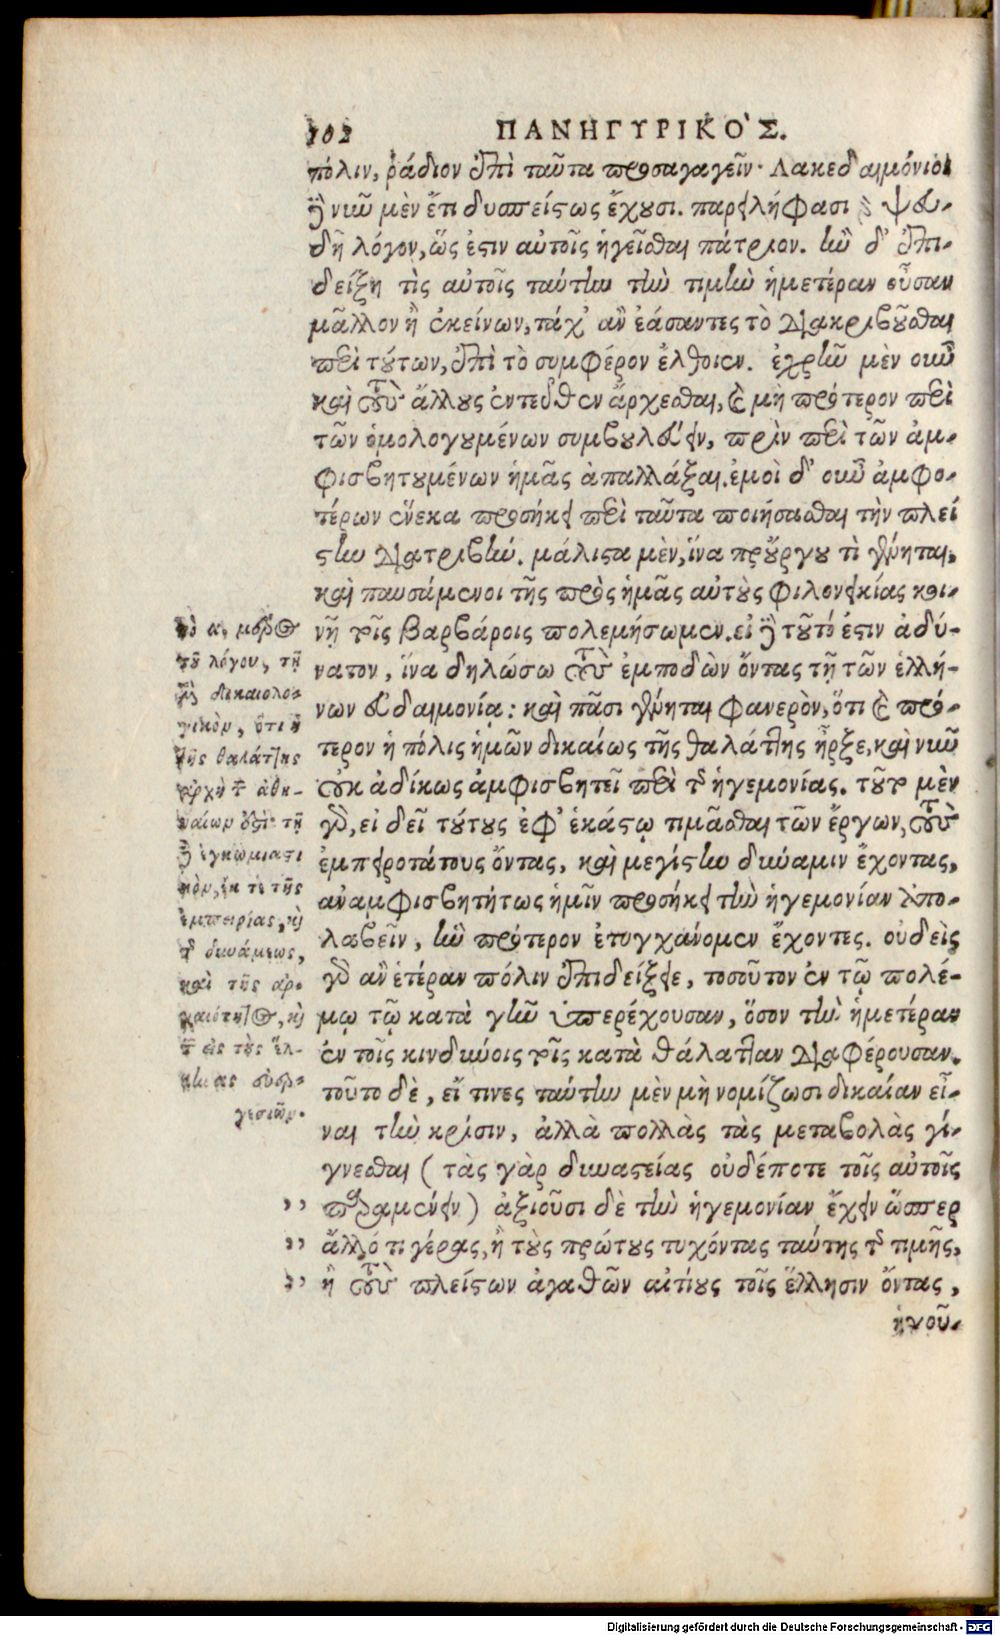 102 ΠΑΝΗΓΥΡΙΚΟ'Σ.
πόλιν, ῥάδιον ἐπὶ ταῦτα προσαγαγεῖν· Λακεδαιμόνιοι
γὰρ νῦν μὲν ἔτι δυσπείστως ἔχουσι. παρειλήφασι γὰρ ψευ-
δῆ λόγον, ὥς ἐστιν αὐτοῖς ἡγεῖσθαι πάτριον. ἢν δ' ἐπι-
δείξῃ τὶς αὐτοῖς ταύτην τὴν τιμὴν ἡμετέραν οὖσαν
μᾶλλον ἢ ἐκείνων, τάχ' ἂν ἐάσαντες τὸ διακριβοῦσθαι
περὶ τούτων, ἐπὶ τὸ συμφέρον ἔλθοιεν. ἐχρῆν μὲν οὖν
καὶ τοὺς ἄλλους ἐντεῦθεν ἄρχεσθαι, καὶ μὴ πρότερον περὶ
τῶν ὁμολογουμένων συμβουλεύειν, πρὶν περὶ τῶν ἀμ-
φισβητουμένων ἡμᾶς ἀπαλλάξαι. ἐμοὶ δ' οὖν ἀμφο-
τέρων ἕνεκα προσήκει περὶ ταῦτα ποιήσασθαι τὴν πλεί
στην διατριβήν. μάλιστα μὲν, ἵνα προὔργου τὶ γένηται,
καὶ παυσάμενοι τῆς πρὸς ἡμᾶς αὐτοὺς φιλονεικίας κοι-
νῇ τοῖς βαρβάροις πολεμήσωμεν. εἰ δὲ τοῦτό ἐστιν ἀδύ-
νατον, ἵνα δηλώσω τοὺς ἐμποδὼν ὄντας τῇ τῶν ἑλλή-
νων εὐδαιμονίᾳ: καὶ πᾶσι γένηται φανερὸν, ὅτι καὶ πρό-
τερον ἡ πόλις ἡμῶν δικαίως τῆς θαλάττης ἦρξε, καὶ νῦν
οὐκ ἀδίκως ἀμφισβητεῖ περὶ τῆς ἡγεμονίας. τοῦτο μὲν
γὰρ, εἰ δεῖ τούτους ἐφ' ἑκάστῳ τιμᾶσθαι τῶν ἔργων, τοὺς
ἐμπειροτάτους ὄντας, καὶ μεγίστην δύναμιν ἔχοντας,
ἀναμφισβητήτως ἡμῖν προσήκει τὴν ἡγεμονίαν ἀπο-
λαβεῖν, ἣν πρότερον ἐτυγχάνομεν ἔχοντες. οὐδεὶς
γὰρ ἂν ἑτέραν πόλιν ἐπιδείξειε, τοσοῦτον ἐν τῷ πολέ-
μῳ τῷ κατὰ γῆν ὑπερέχουσαν, ὅσον τὴν ἡμετέραν
ἐν τοῖς κινδύνοις τοῖς κατὰ θάλατταν διαφέρουσαν.
τοῦτο δὲ, εἴ τινες ταύτην μὲν μὴ νομίζωσι δικαίαν εἶ-
ναι τὴν κρίσιν, ἀλλὰ πολλὰς τὰς μεταβολὰς γί-
γνεσθαι (τὰς γὰρ δυναστείας οὐδέποτε τοῖς αὐτοῖς
,, παραμένειν) ἀξιοῦσι δὲ τὴν ἡγεμονίαν ἔχειν ὥσπερ
,, ἄλλό τι γέρας, ἢ τοὺς πρώτους τυχόντας ταύτης τῆς τιμῆς,
,, ἢ τοὺς πλείστων ἀγαθῶν αἰτίους τοῖς ἕλλησιν ὄντας,
ἡγοῦ-
τὸ κ, μέρος
τοῦ λόγου, τῇ
δικαιολο-
γικὸν, ὅτι ἡ
τῆς θαλάττης
ἀρχὴ τῶν ἀθη-
ναίων
ἐγκωμιαστι
κὸν, ἔκ τε τῆς
ἐμπειρίας, καὶ
τῆς δυνάμεως,
καὶ τῆς ἀρ-
χαιότητος, καὶ
τῶν εἰς τοὺς ἕλ-
ληνας εὐερ-
γεσιῶν.
Digitalisierung gefördert durch die Deutsche Forschungsgemeinschaft - DFG